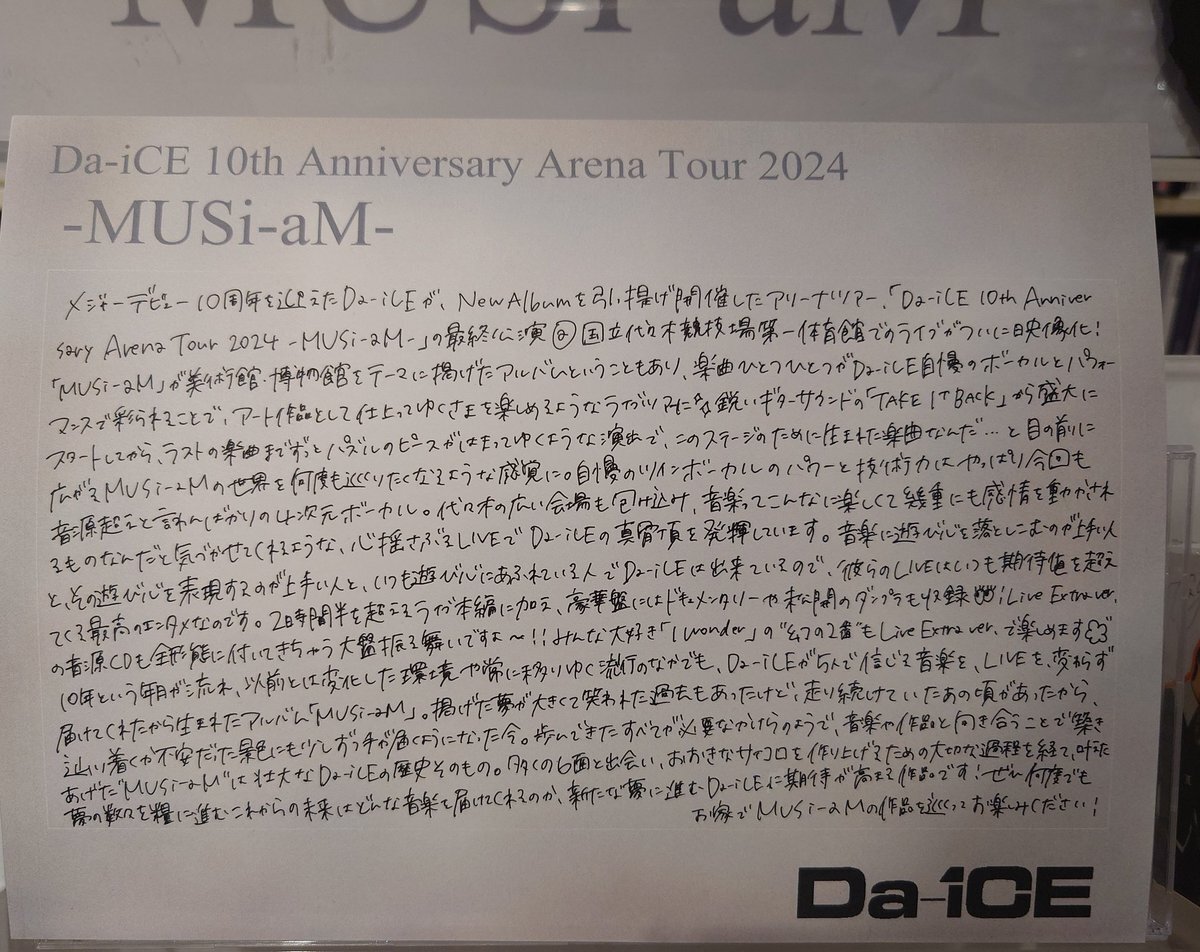 MUSi-aM
Da-iCE 10th Anniversary Arena Tour 2024
-MUSi-aM-
メジャーデビュー10周年を迎えたDa-iCEが、New Albumを引っ提げ開催したアリーナツアー、「Da-iCE 10th Anniver
sary Arena Tour 2024 -MUSi-aM-」の最終公演@国立代々木競技場第一体育館でのライブがついに映像化!
「MUSi-aM」が美術館・博物館をテーマに掲げたアルバムということもあり、楽曲ひとつひとつがDa-iCE自慢のボーカルとパフォー
マンスで彩られることで、アート作品として仕上ってゆくさまを楽しめるようなライブツアーに 鋭いギターサウンドの「TAKE IT BACK」から盛大に
スタートしてから、ラストの楽曲までずっとパズルのピースがはまってゆくような演出で、このステージのために生まれた楽曲なんだ…と目の前に
広がるMUSi-aMの世界を何度も巡りたくなるような感覚に。自慢のツインボーカルのパワーと技術力はやっぱり今回も
音源超えと言わんばかりの4次元ボーカル。代々木の広い会場も包み込み、音楽ってこんなに楽しくて幾重にも感情を動かされ
るものなんだと気づかせてくれるような、心揺さぶるLIVEでDa-iCEの真骨頂を発揮しています。音楽に遊び心を落としこむのが上手い人
と、その遊び心を表現するのが上手い人と、いつも遊び心にあふれている人でDa-iCEは出来ているので、彼らのLIVEはいつも期待値を超え
てくる最高のエンタメなのです。2時間半を超えるライブ本編に加え、豪華盤にはドキュメンタリーや未公開のダンプラも収録 !Live Extra ver.
の音源CDも全形態に付いてきちゃう大盤振る舞いですよ〜!!みんな大好き「I wonder」の"幻の2番"もLive Extra ver.で楽しめます
10年という年月が流れ、以前とは変化した環境や常に移りゆく流行のなかでも、Da-iCEが5人で信じる音楽を、LIVEを、変わらず
届けてくれたから生まれたアルバム「MUSi-aM」。掲げた夢が大きくて笑われた過去もあったけど、走り続けていたあの頃があったから、
辿り着くか不安だった景色にも少しずつ手が届くようになった今。歩んできたすべてが必要なかけらのようで、音楽や作品と向き合うことで築き
あげた"MUSi-aM"は壮大なDa-iCEの歴史そのもの。多くの6面と出会い、おおきなサイコロを作り上げるための大切な過程を経て、叶えた
夢の数々を糧に進むこれからの未来はどんな音楽を届けてくれるのか、新たな夢に進むDa-iCEに期待が高まる作品です!ぜひ何度でも
お家でMUSi-aMの作品を巡ってお楽しみください!
Da-iCE